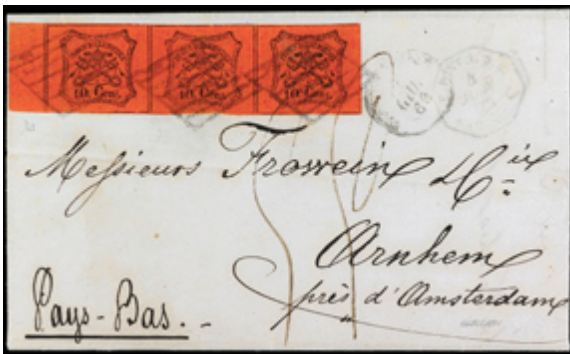 10 Cent. 10 Cent. 10 Cent.
GIU
68
Messieurs Frowein & Cie
Arnhem
près d'Amsterdam
Pays-Bas.